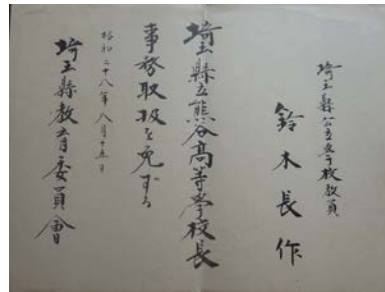 埼玉縣公立学校教員
鈴木長作
埼玉縣立熊谷高等學校長
事務取扱を免ずる
昭和二十八年八月十五日
埼玉縣教育委員會